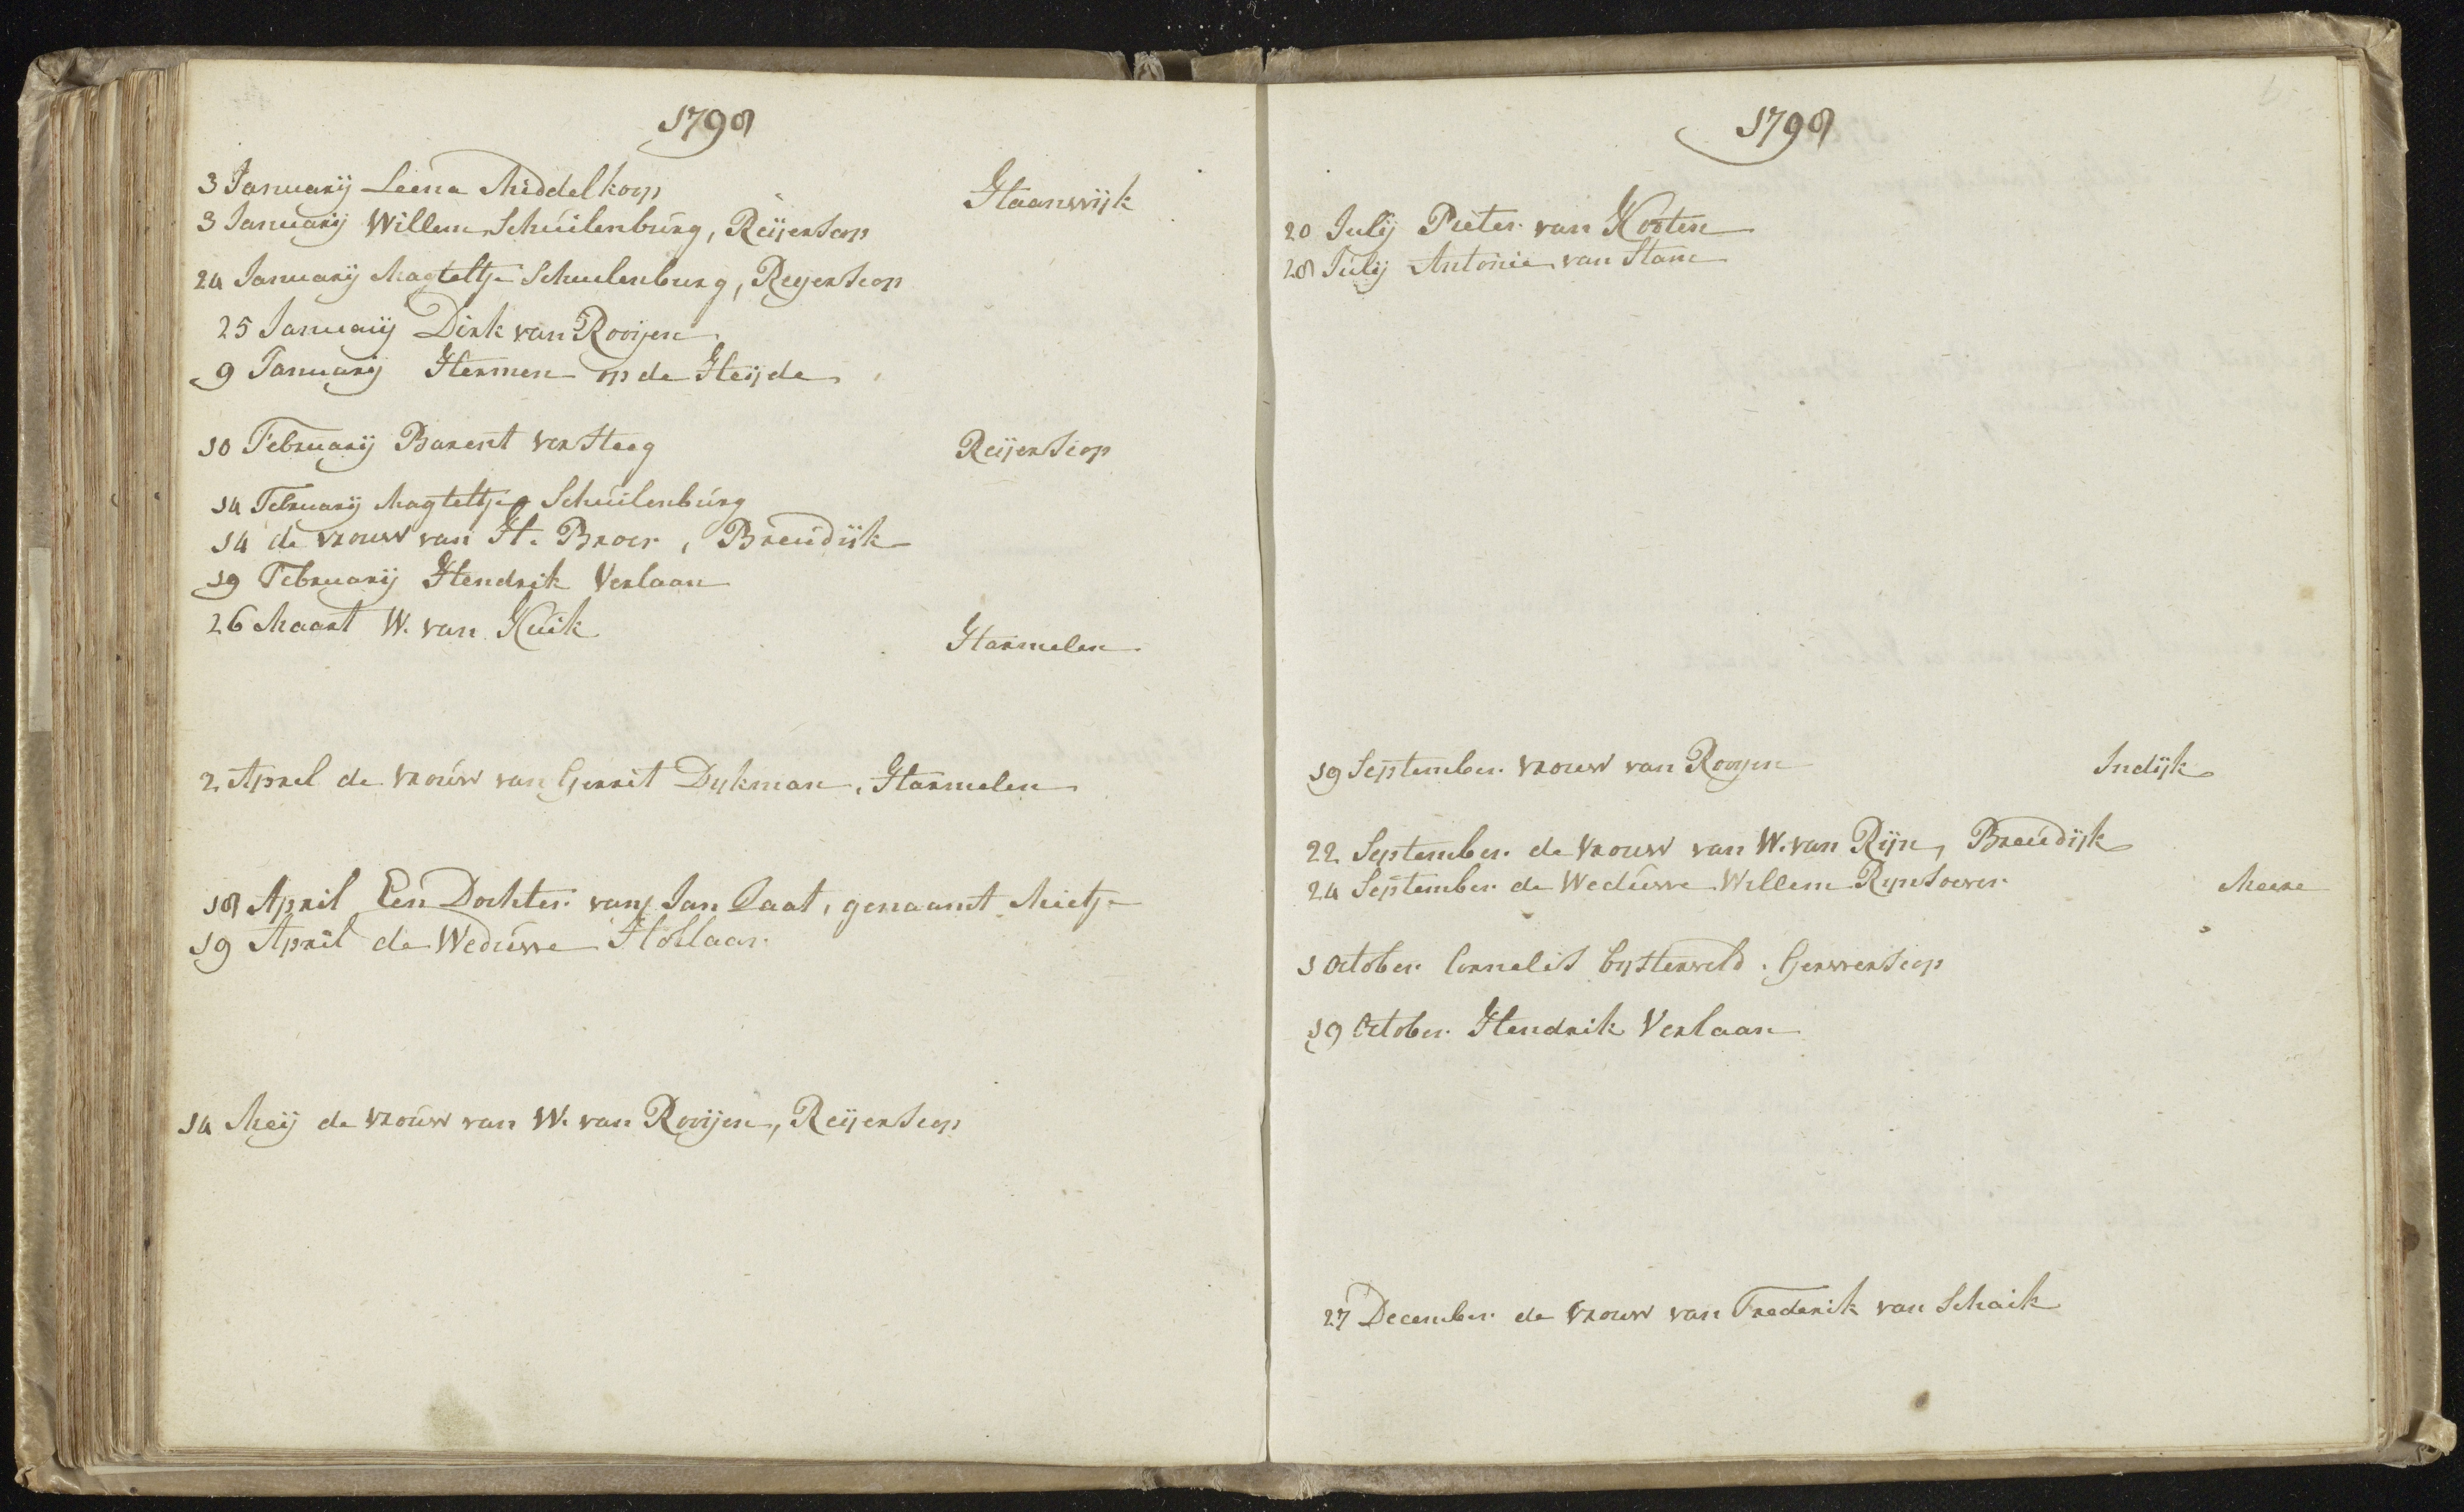 1798
3 Januarij Leena Middelkoop Haanwijk
3 Januarij Willem Schuilenburg, Reijerscop
24 Januarij Magteltje Schuilenburg, Reyerscop
25 Januarij Dirk van Rooijen
9 Januarij Hermen op de Heijde
10 Februarij Barent versteeg Reijerscop
14 Februarij Magteltje Schuilenburg
14 de vrouw van H. Broer, Breudijk
19 Februarij Hendrik Verlaan
26 Maart W. van Kuik Harmelen
2 April de vrouw van Gerrit Dykman, Harmelen
18 April Een Dochter van Jan Laat, genaamt Mietje
19 April de Weduwe Hollaar
14 Meij de vrouw van W. van Rooijen, Reijerscop
1798
20 Julij Pieter van Kooten
28 Julij Antonie van Stam
19 September vrouw van Rooyen Indijk
22 September de vrouw van W. van Rijn, Breudijk
24 September de Weduwe Willem Rynsoever Meere
1 October Cornelis bysterveld. Gerverscop
19 October Hendrik Verlaan
27 December de vrouw van Frederik van Schaik